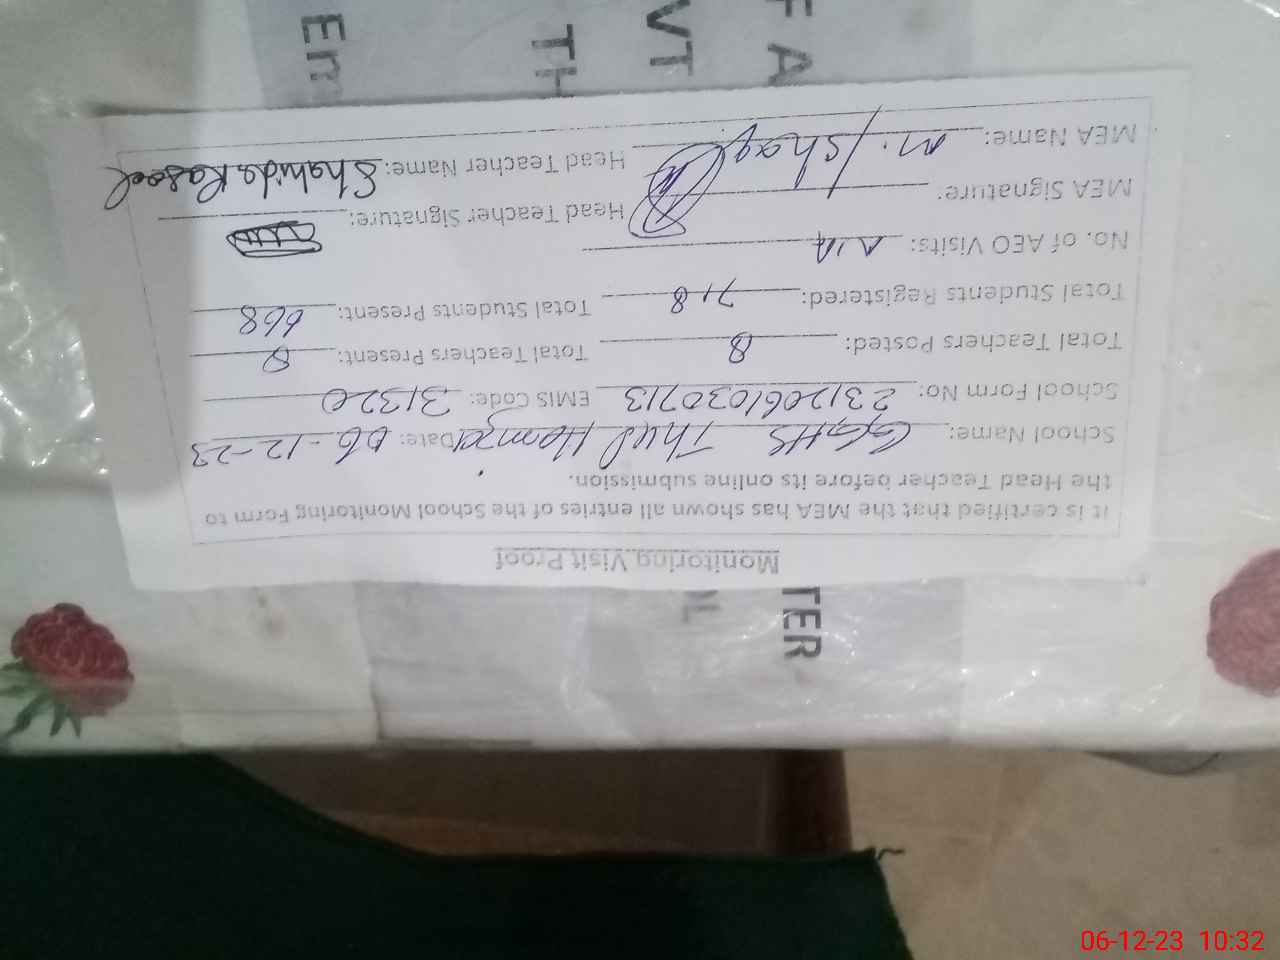 Monitoring Visit Proof
It is certified that the MEA has shown all entries of the School Monitoring Form to
the Head Teacher before its online submission.
School Name: GGHS Thul Hamza Date: 06-12-23
School Form No: 2312061030713 EMIS Code: 31320
Total Teachers Posted: 8 Total Teachers Present: 8
Total Students Registered: 718 Total Students Present: 668
No. of AEO Visits: Nil
MEA Signature: Head Teacher Signature:
MEA Name: M. Ishaq Head Teacher Name: Shahida Rasool
TER
F A
VT
TH
Em
06-12-23 10:32